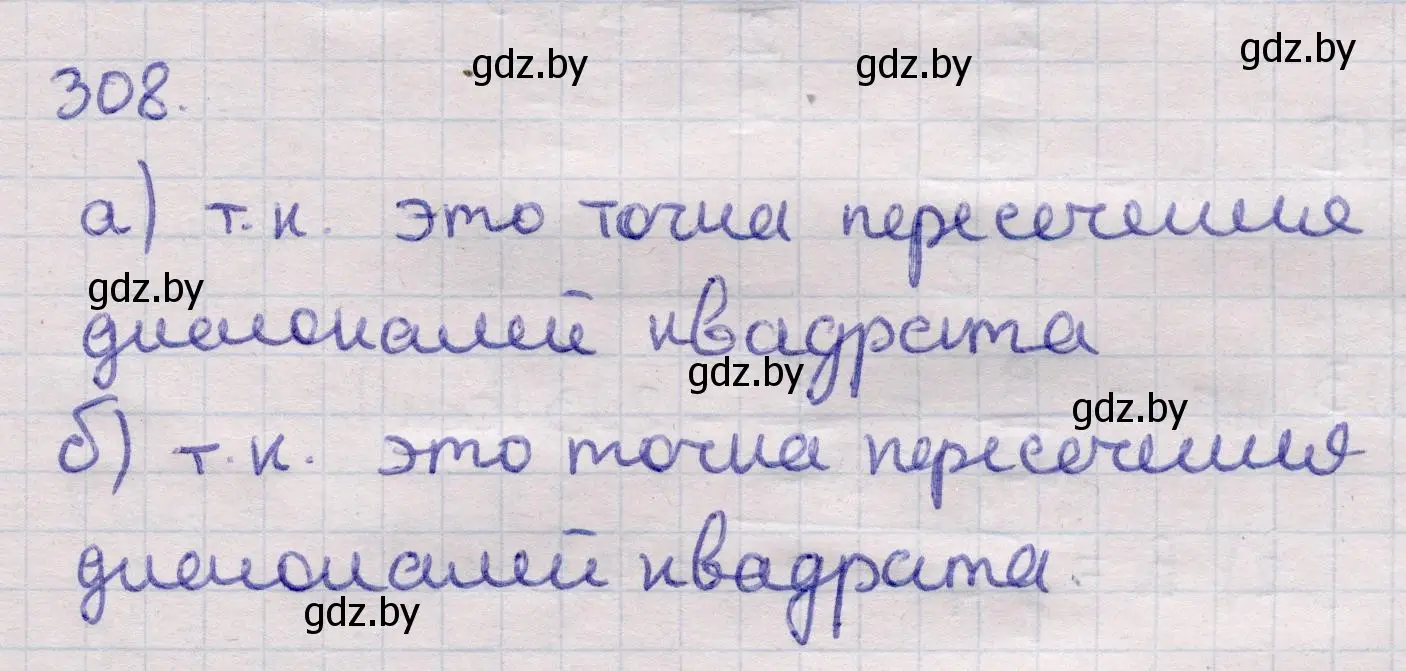 gdz.by gdz.by gdz.by
308.
а) т.к. это точка пересечения
gdz.by
диагоналей квадрата
gdz.by
gdz.by
б) т.к. это точка пересечения
диагоналей квадрата.
gdz.by